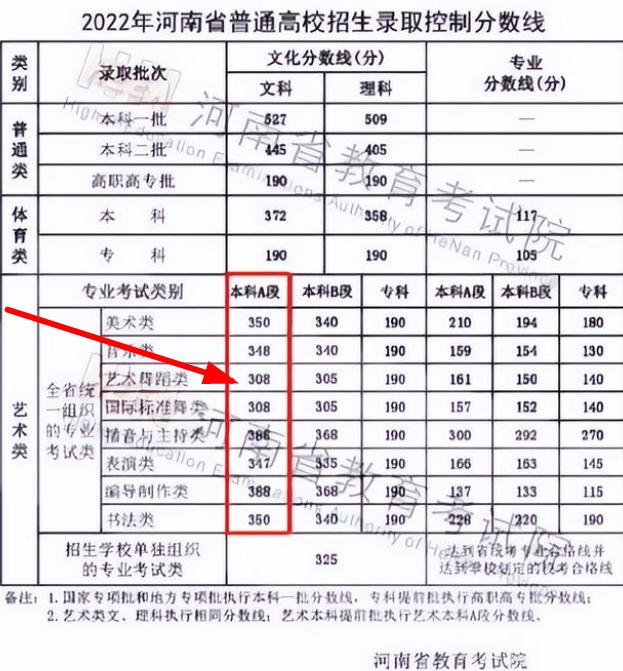 2022年河南省普通高校招生录取控制分数线
类别 录取批次 文化分数线(分) 专业分数线(分)
文科 理科
普通类 本科一批 527 509 —
本科二批 445 405 —
高职高专批 190 190 —
体育类 本 科 372 358 117
专 科 190 190 105
艺术类 专业考试类别 本科A段 本科B段 专科 本科A段 本科B段 专科
全省统一组织的专业考试类 美术类 350 340 190 210 194 180
音乐类 348 340 190 159 154 130
艺术舞蹈类 308 305 190 161 150 140
国际标准舞类 308 305 190 157 152 140
播音与主持类 388 368 190 300 292 270
表演类 347 335 190 166 163 145
编导制作类 388 368 190 137 133 115
书法类 350 340 190 228 220 190
招生学校单独组织的专业考试类 325 达到省统考专业合格线并达到学校划定的校考合格线
备注：1.国家专项批和地方专项批执行本科一批分数线，专科提前批执行高职高专批分数线；
2.艺术类文、理科执行相同分数线；艺术本科提前批执行艺术本科A段分数线。
河南省教育考试院
河南省教育考试院
Higher Education Examinations Authority of HeNan Province
河南省教育考试院